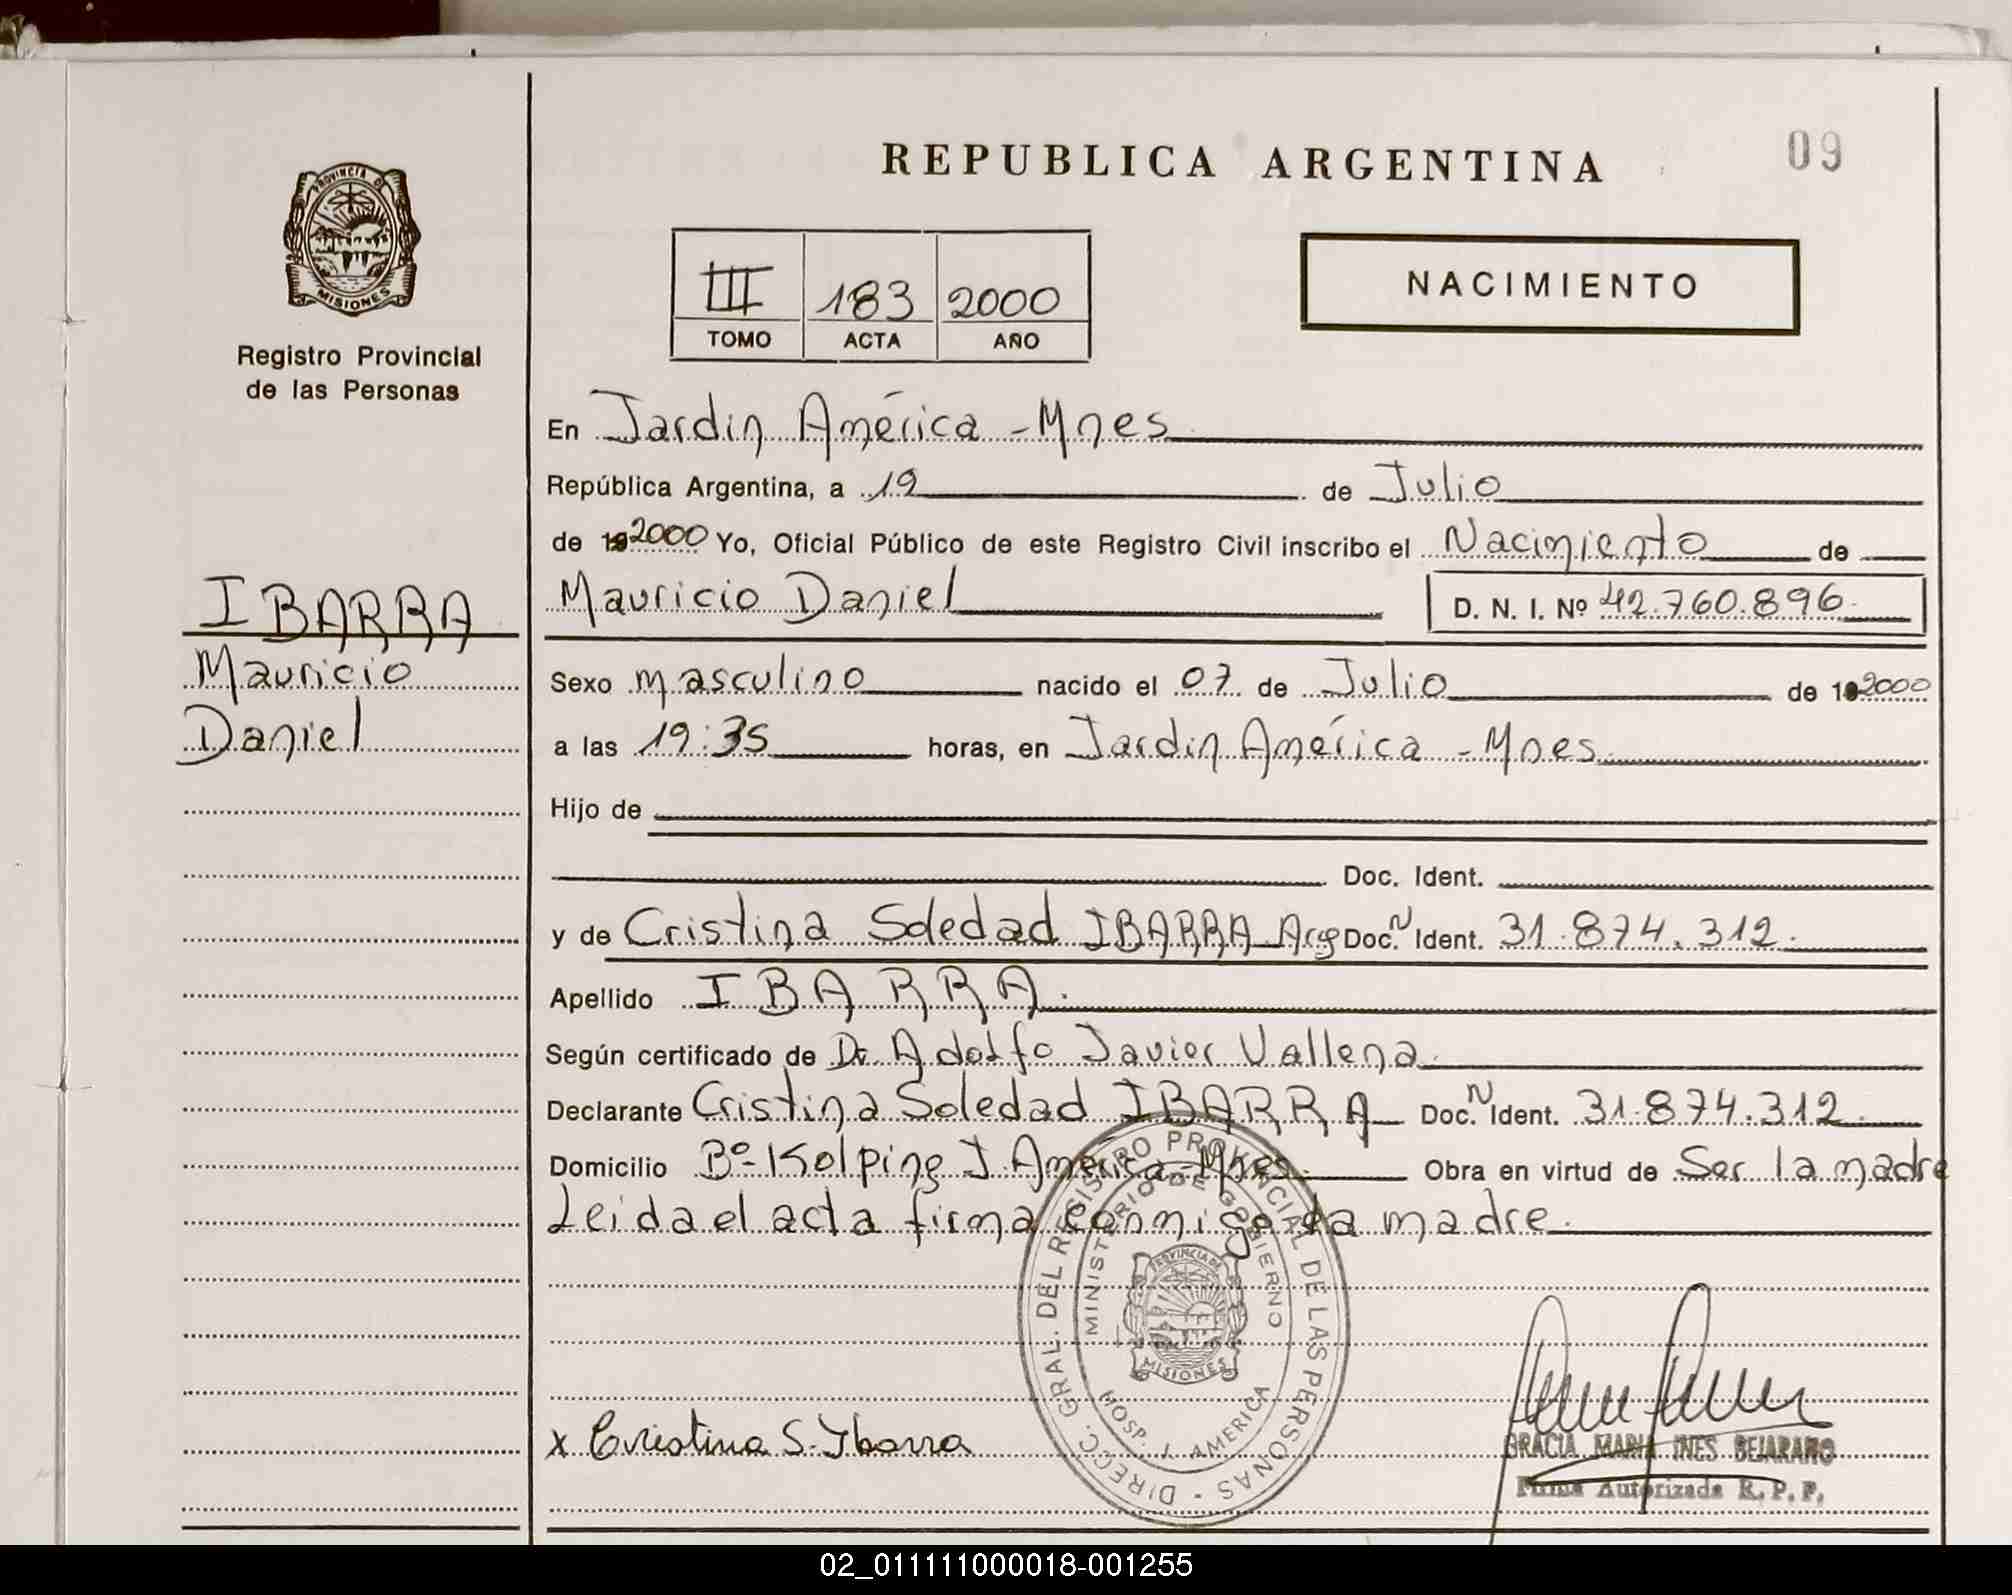 REPUBLICA ARGENTINA
09
PROVINCIA D
MISIONES
Registro Provincial
de las Personas
III 183 2000
TOMO ACTA AÑO
NACIMIENTO
En Jardin América - Mnes
República Argentina, a 19 de Julio
de 19 2000 Yo, Oficial Público de este Registro Civil inscribo el Nacimiento de
Mauricio Daniel D. N. I. Nº 42.760.896
IBARRA
Mauricio
Daniel
Sexo masculino nacido el 07 de Julio de 19 2000
a las 19:35 horas, en Jardin América - Mnes
Hijo de
Doc. Ident.
y de Cristina Soledad IBARRA Arg Doc. N Ident. 31.874.312.
Apellido IBARRA.
Según certificado de Dr. Adolfo Javier Vallena
Declarante Cristina Soledad IBARRA Doc. N Ident. 31.874.312.
Domicilio Bº- Kolping J. América - Mnes Obra en virtud de Ser la madre
Leida el acta firma conmigo la madre.
DIREC. GRAL. DEL REGISTRO PROVINCIAL DE LAS PERSONAS -
MINISTERIO DE GOBIERNO
PROVINCIA DE
MISIONES
HOSP. J. AMERICA
x Cristina S. Ybarra
GRACIA MARIA INES BEJARANO
Firma Autorizada R. P. P.
02_011111000018-001255